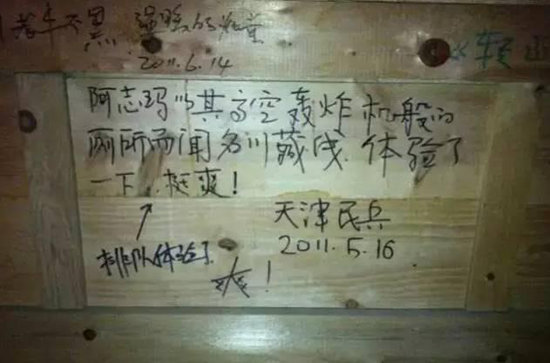 若车不黑 温强的纯童
2011.6.14
阿志玛以其高空轰炸机般的
厕所而闻名川藏线.体验了
一下,挺爽!
天津民兵
2011.5.16
排队体验了
爽!